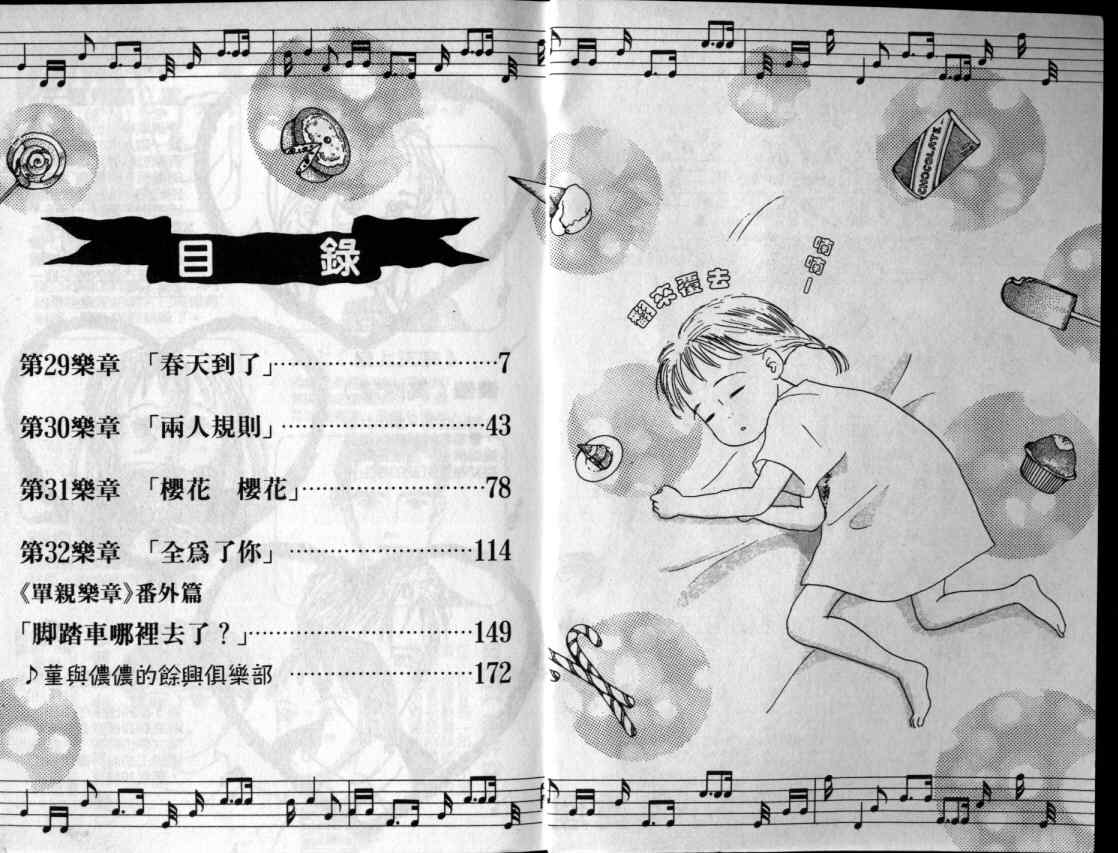 目錄
第29樂章 「春天到了」……………………………7
第30樂章 「兩人規則」…………………………43
第31樂章 「櫻花 櫻花」………………………78
第32樂章 「全爲了你」………………………114
《單親樂章》番外篇
「脚踏車哪裡去了？」……………………………149
♪菫與儂儂的餘興俱樂部 ………………………172
CHOCOLATE
翻來覆去